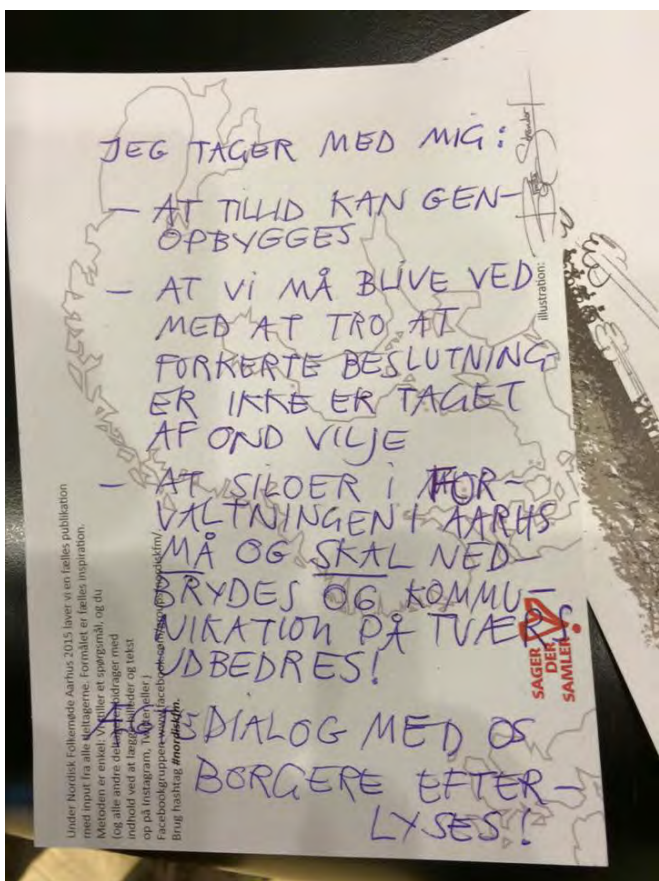 JEG TAGER MED MIG:
– AT TILLID KAN GEN-
OPBYGGES
– AT Vi MÅ BLIVE VED
MED AT TRO AT
FORKERTE BESLUTNING
ER IKKE ER TAGET
AF OND VILJE
– AT SILOER i FOR-
VALTNINGEN I AARHUS
MÅ OG SKAL NED-
BRYDES OG KOMMU-
NIKATION PÅ TVÆRS
UDBEDRES!
DIALOG MED OS
BORGERE EFTER-
LYSES!
Under Nordisk Folkemøde Aarhus 2015 laver vi en fælles publikation
med input fra alle deltagerne. Formålet er fælles inspiration.
Metoden er enkel: Vi stiller et spørgsmål, og du
(og alle andre deltagere) bidrager med
indhold ved at lægge billeder og tekst
op på Instagram, eller.)
Facebookgruppen www.facebook.com/groups/nordiskfm/
Brug hashtag #nordiskfm.
illustration:
SAGER
DER
SAMLER